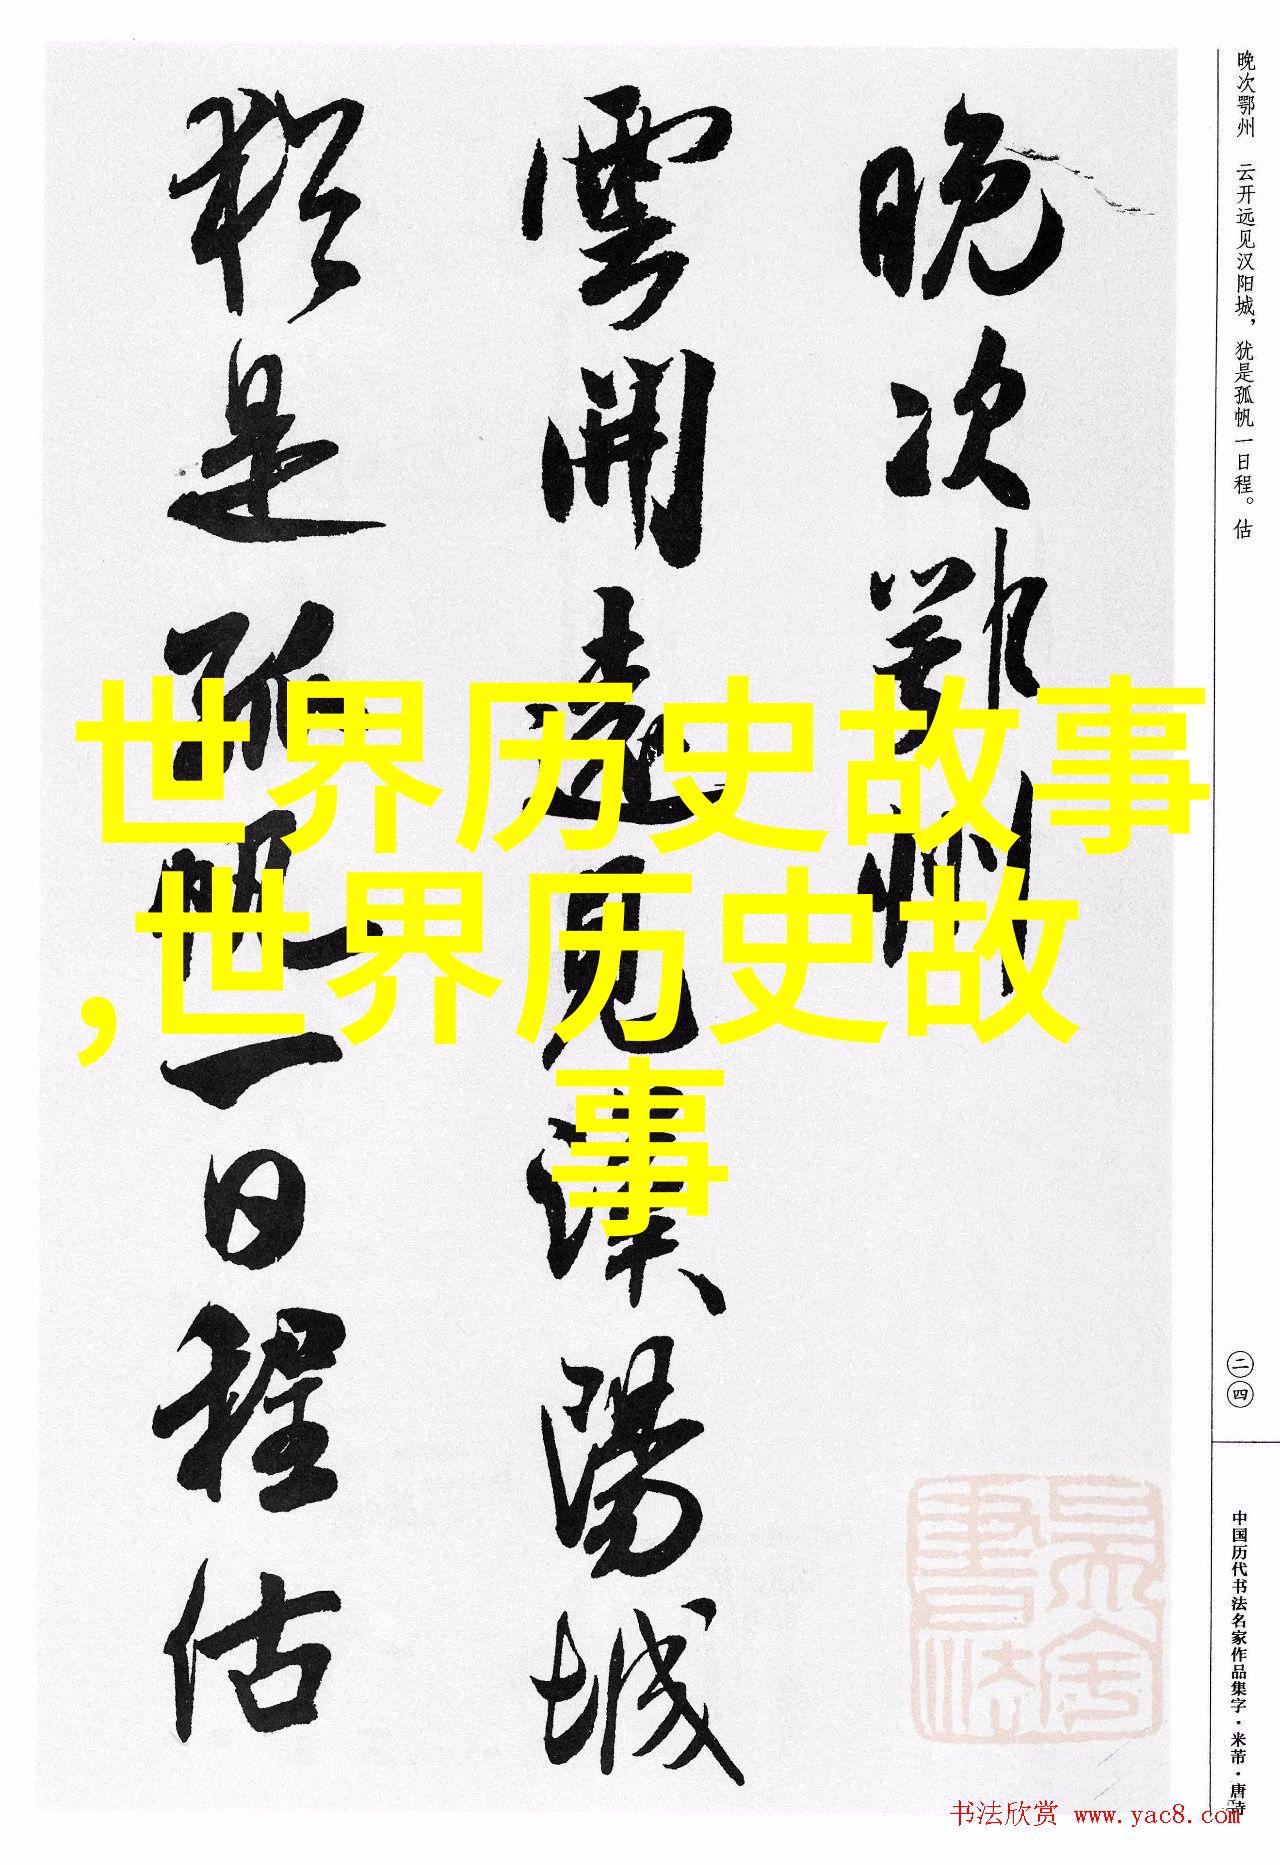 世界历史故事
,世界历史故
事
晚次鄂州
雲開遠見漢陽城
猶是孤帆一日程估
晚次鄂州 云开远见汉阳城，犹是孤帆一日程。估
二四
中国历代书法名家作品集字·米芾·唐诗
书法欣赏 www.yac8.com